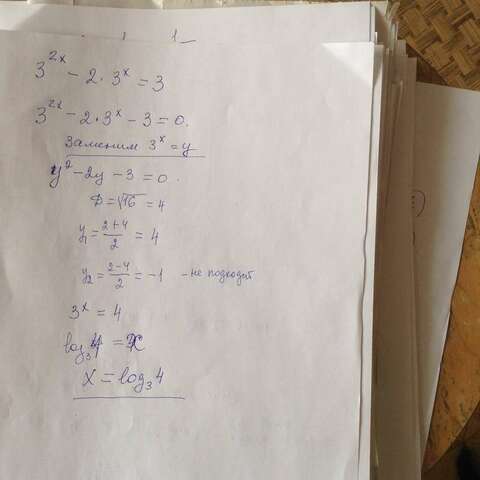 3^{2x} - 2 · 3^x = 3
3^{2x} - 2 · 3^x - 3 = 0.
Заменим 3^x = y
y^2 - 2y - 3 = 0.
D = √16 = 4
y_1 = \frac{2+4}{2} = 4
y_2 = \frac{2-4}{2} = -1 - не подходит
3^x = 4
log_3 4 = x
x = log_3 4